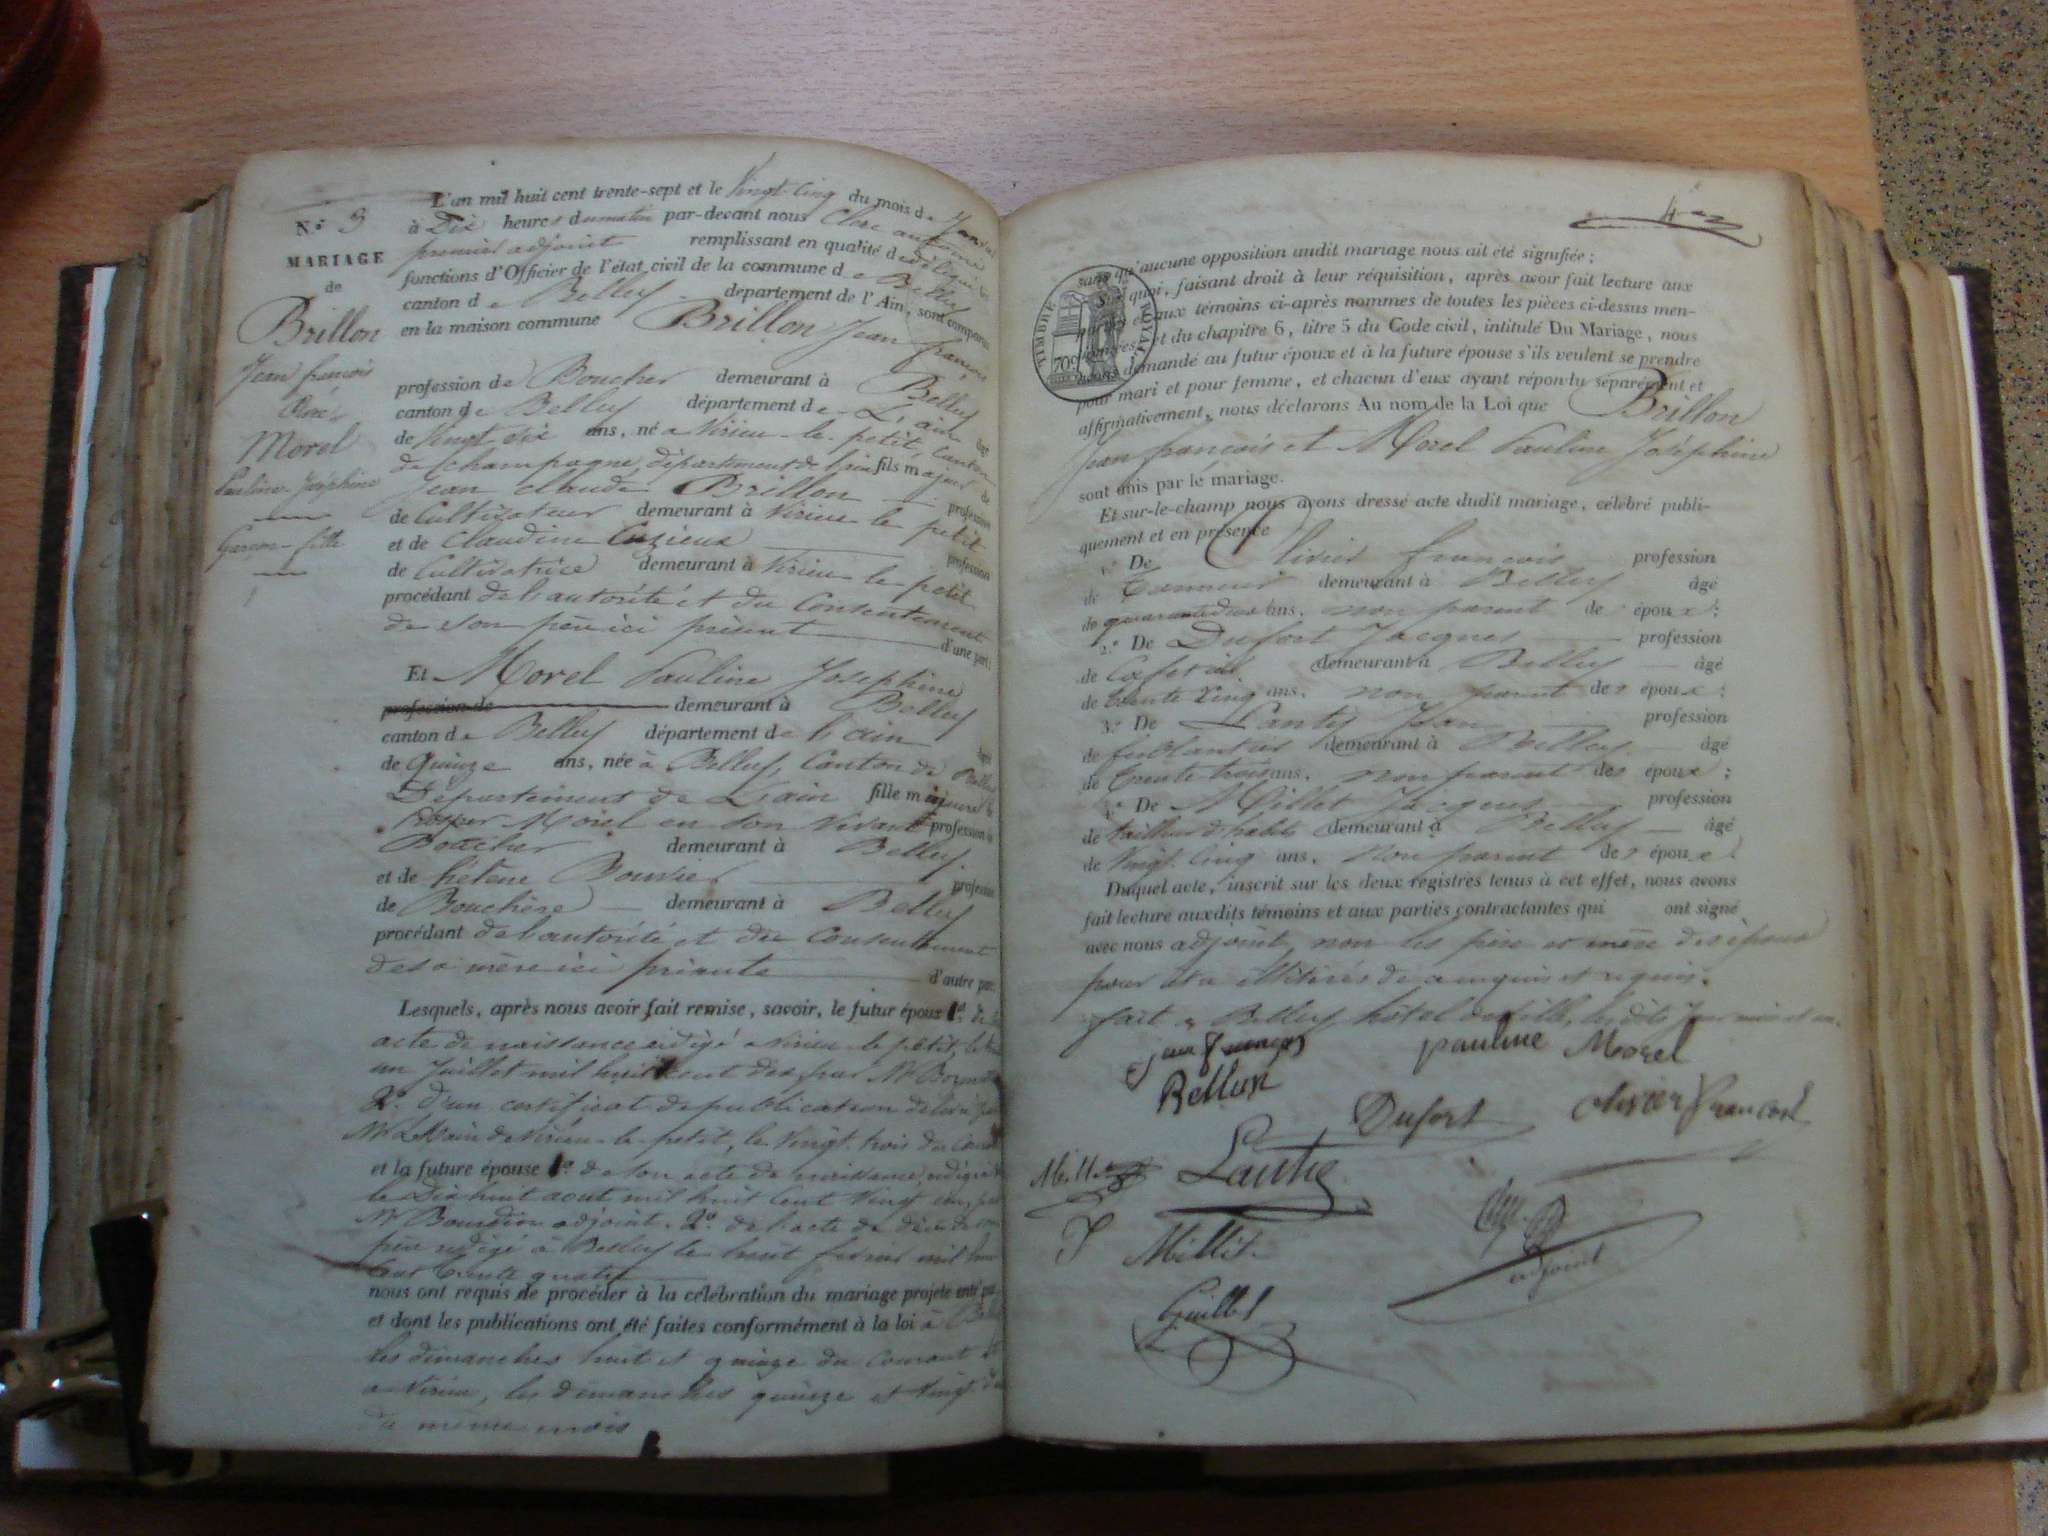 N.° 3
MARIAGE
de
Brillon
Jean françois
Avec
Morel
Pauline Joséphine
Garçon - fille
L'an mil huit cent trente-sept et le vingt-cinq du mois de Janvier
à Dix heures du matin par-devant nous Clerc
premier adjoint remplissant en qualité de délégué les
fonctions d'Officier de l'état civil de la commune de Belley
canton de Belley département de l'Ain, sont comparus
en la maison commune Brillon Jean françois
profession de Boucher demeurant à Belley
canton de Belley département de L'ain âgé
de Vingt six ans, né a Virieu-le-petit, Canton
de champagne, département de l'ain fils majeur de
Jean claude Brillon profession
de Cultivateur demeurant à Virieu le petit
et de Claudine Cuzieux profession
de Cultivatrice demeurant à Virieu-le-petit
procédant de l'autorité et du Consentement
de son père ici présent d'une part;
Et Morel Pauline Josephine
profession de demeurant à Belley
canton de Belley département de l'ain âgée
de Quinze ans, née à Belley, Canton de Belley
Département de L'ain fille mineure de
Morel en son Vivant profession de
Boucher demeurant à Belley
et de hélène Bouvier profession
de Bouchère demeurant à Belley
procédant de l'autorité et du Consentement
de sa mère ici présente d'autre part.
Lesquels, après nous avoir fait remise, savoir, le futur époux 1.° de son
acte de naissance rédigé a Virieu-le-petit, le
un Juillet mil huit cent dix par Mr
2.° d'un certificat de publication délivré par
Mr Le Maire de Virieu-le-petit, le Vingt trois du Courant
et la future épouse 1.° de son acte de naissance rédigé
le Dix huit aout mil huit Cent Vingt un, par
Mr Bourdin adjoint. 2.° de l'acte de décès de son
père rédigé à Belley le huit fevrier mil huit
Cent trente quatre
nous ont requis de procéder à la célébration du mariage projeté entre eux
et dont les publications ont été faites conformément à la loi à Belley
les dimanches huit et quinze du courant et
a Virieu, les dimanches quinze et Vingt deux
du même mois
4
TIMBRE ROYAL
70 c
sans qu'aucune opposition audit mariage nous ait été signifiée;
Sur quoi, faisant droit à leur réquisition, après avoir fait lecture aux
parties et aux témoins ci-après nommés de toutes les pièces ci-dessus men-
tionnées, et du chapitre 6, titre 5 du Code civil, intitulé Du Mariage, nous
avons demandé au futur époux et à la future épouse s'ils veulent se prendre
pour mari et pour femme, et chacun d'eux ayant répondu séparément et
affirmativement, nous déclarons Au nom de la Loi que Brillon
Jean françois et Morel Pauline Joséphine
sont unis par le mariage.
Et sur-le-champ nous avons dressé acte dudit mariage, célébré publi-
quement et en présence
1.° De Olivier françois profession
de Tanneur demeurant à Belley âgé
de quarante deux ans, non parent de époux;
2.° De Dufort Jacques profession
de Cafetier demeurant à Belley âgé
de trente Cinq ans, non parent des époux;
3.° De Jean profession
de ferblantier demeurant à Belley âgé
de trente trois ans, non parent des époux;
4.° De Millet Jacques profession
de tailleur d'habits demeurant à Belley âgé
de Vingt Cinq ans, non parent des époux.
Duquel acte, inscrit sur les deux registres tenus à cet effet, nous avons
fait lecture auxdits témoins et aux parties contractantes qui ont signé
avec nous adjoint, non les père et mère des époux
pour être illitérés de ce enquis et requis.
fait a Belley hôtel de ville, les dits Jour mois et an.
jean François pauline Morel
Dufort olivier francois
Millet
adjoint
Guillot